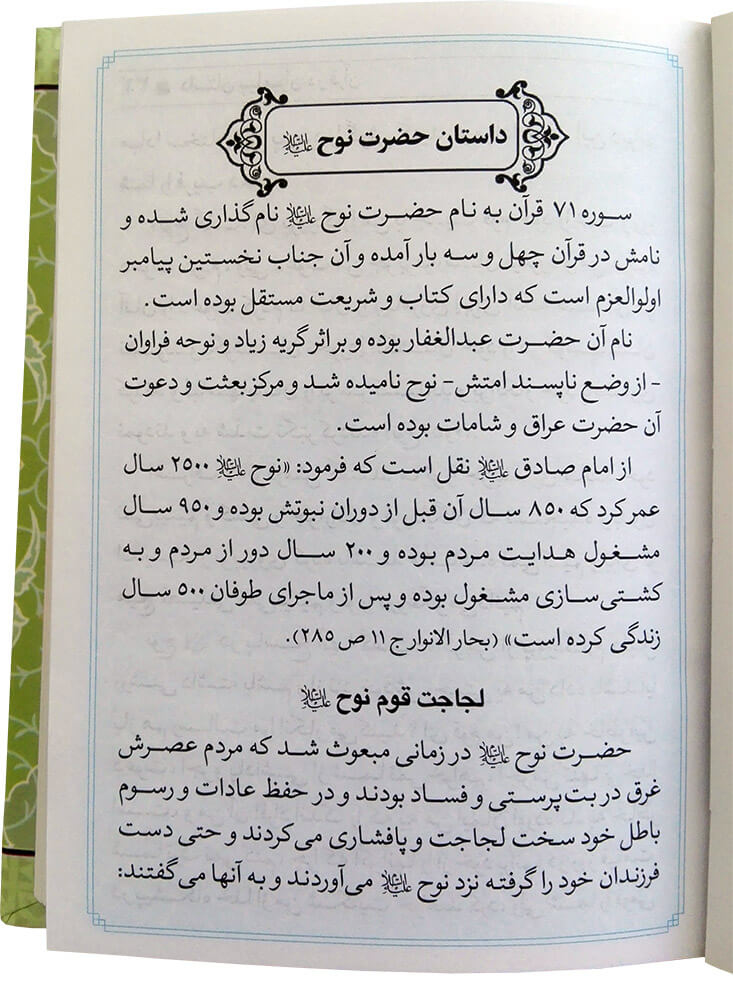 داستان حضرت نوح علیه‌السلام
سوره ۷۱ قرآن به نام حضرت نوح علیه‌السلام نام‌گذاری شده و
نامش در قرآن چهل و سه بار آمده و آن جناب نخستین پیامبر
اولوالعزم است که دارای کتاب و شریعت مستقل بوده است.
نام آن حضرت عبدالغفار بوده و بر اثر گریه زیاد و نوحه فراوان
- از وضع ناپسند امتش- نوح نامیده شد و مرکز بعثت و دعوت
آن حضرت عراق و شامات بوده است.
از امام صادق علیه‌السلام نقل است که فرمود: «نوح علیه‌السلام ۲۵۰۰ سال
عمر کرد که ۸۵۰ سال آن قبل از دوران نبوتش بوده و ۹۵۰ سال
مشغول هدایت مردم بوده و ۲۰۰ سال دور از مردم و به
کشتی‌سازی مشغول بوده و پس از ماجرای طوفان ۵۰۰ سال
زندگی کرده است» (بحار الانوار ج ۱۱ ص ۲۸۵).
لجاجت قوم نوح علیه‌السلام
حضرت نوح علیه‌السلام در زمانی مبعوث شد که مردم عصرش
غرق در بت‌پرستی و فساد بودند و در حفظ عادات و رسوم
باطل خود سخت لجاجت و پافشاری می‌کردند و حتی دست
فرزندان خود را گرفته نزد نوح علیه‌السلام می‌آوردند و به آنها می‌گفتند: